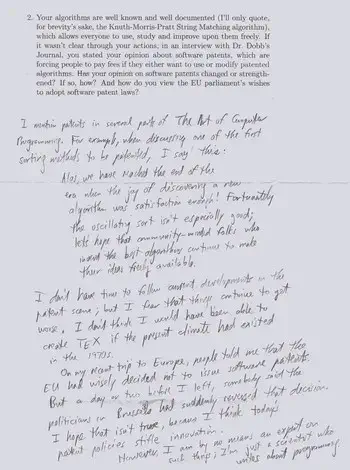 2. Your algorithms are well known and well documented (I'll only quote,
for brevity's sake, the Knuth-Morris-Pratt String Matching algorithm),
which allows everyone to use, study and improve upon them freely. If
it wasn't clear through your actions, in an interview with Dr. Dobb's
Journal, you stated your opinion about software patents, which are
forcing people to pay fees if they either want to use or modify patented
algorithms. Has your opinion on software patents changed or strength-
ened? If so, how? And how do you view the EU parliament's wishes
to adopt software patent laws?
I mention patents in several parts of The Art of Computer
Programming. For example, when discussing one of the first
sorting methods to be patented, I say this:
Alas, we have reached the end of the
era when the joy of discovering a new
algorithm was satisfaction enough! Fortunately
the oscillating sort isn't especially good;
let's hope that community-minded folks who
invent the best algorithms continue to make
their ideas freely available.
I don't have time to follow current developments in the
patent scene; but I fear that things continue to get
worse. I don't think I would have been able to
create TEX if the present climate had existed
in the 1970s.
On my recent trip to Europe, people told me that the
EU had wisely decided not to issue software patents.
But a day or two before I left, somebody said the
politicians in Brussels had suddenly reversed that decision.
I hope that isn't true, because I think today's
patent policies stifle innovation.
However, I am by no means an expert on
such things; I'm just a scientist who
writes about programming.